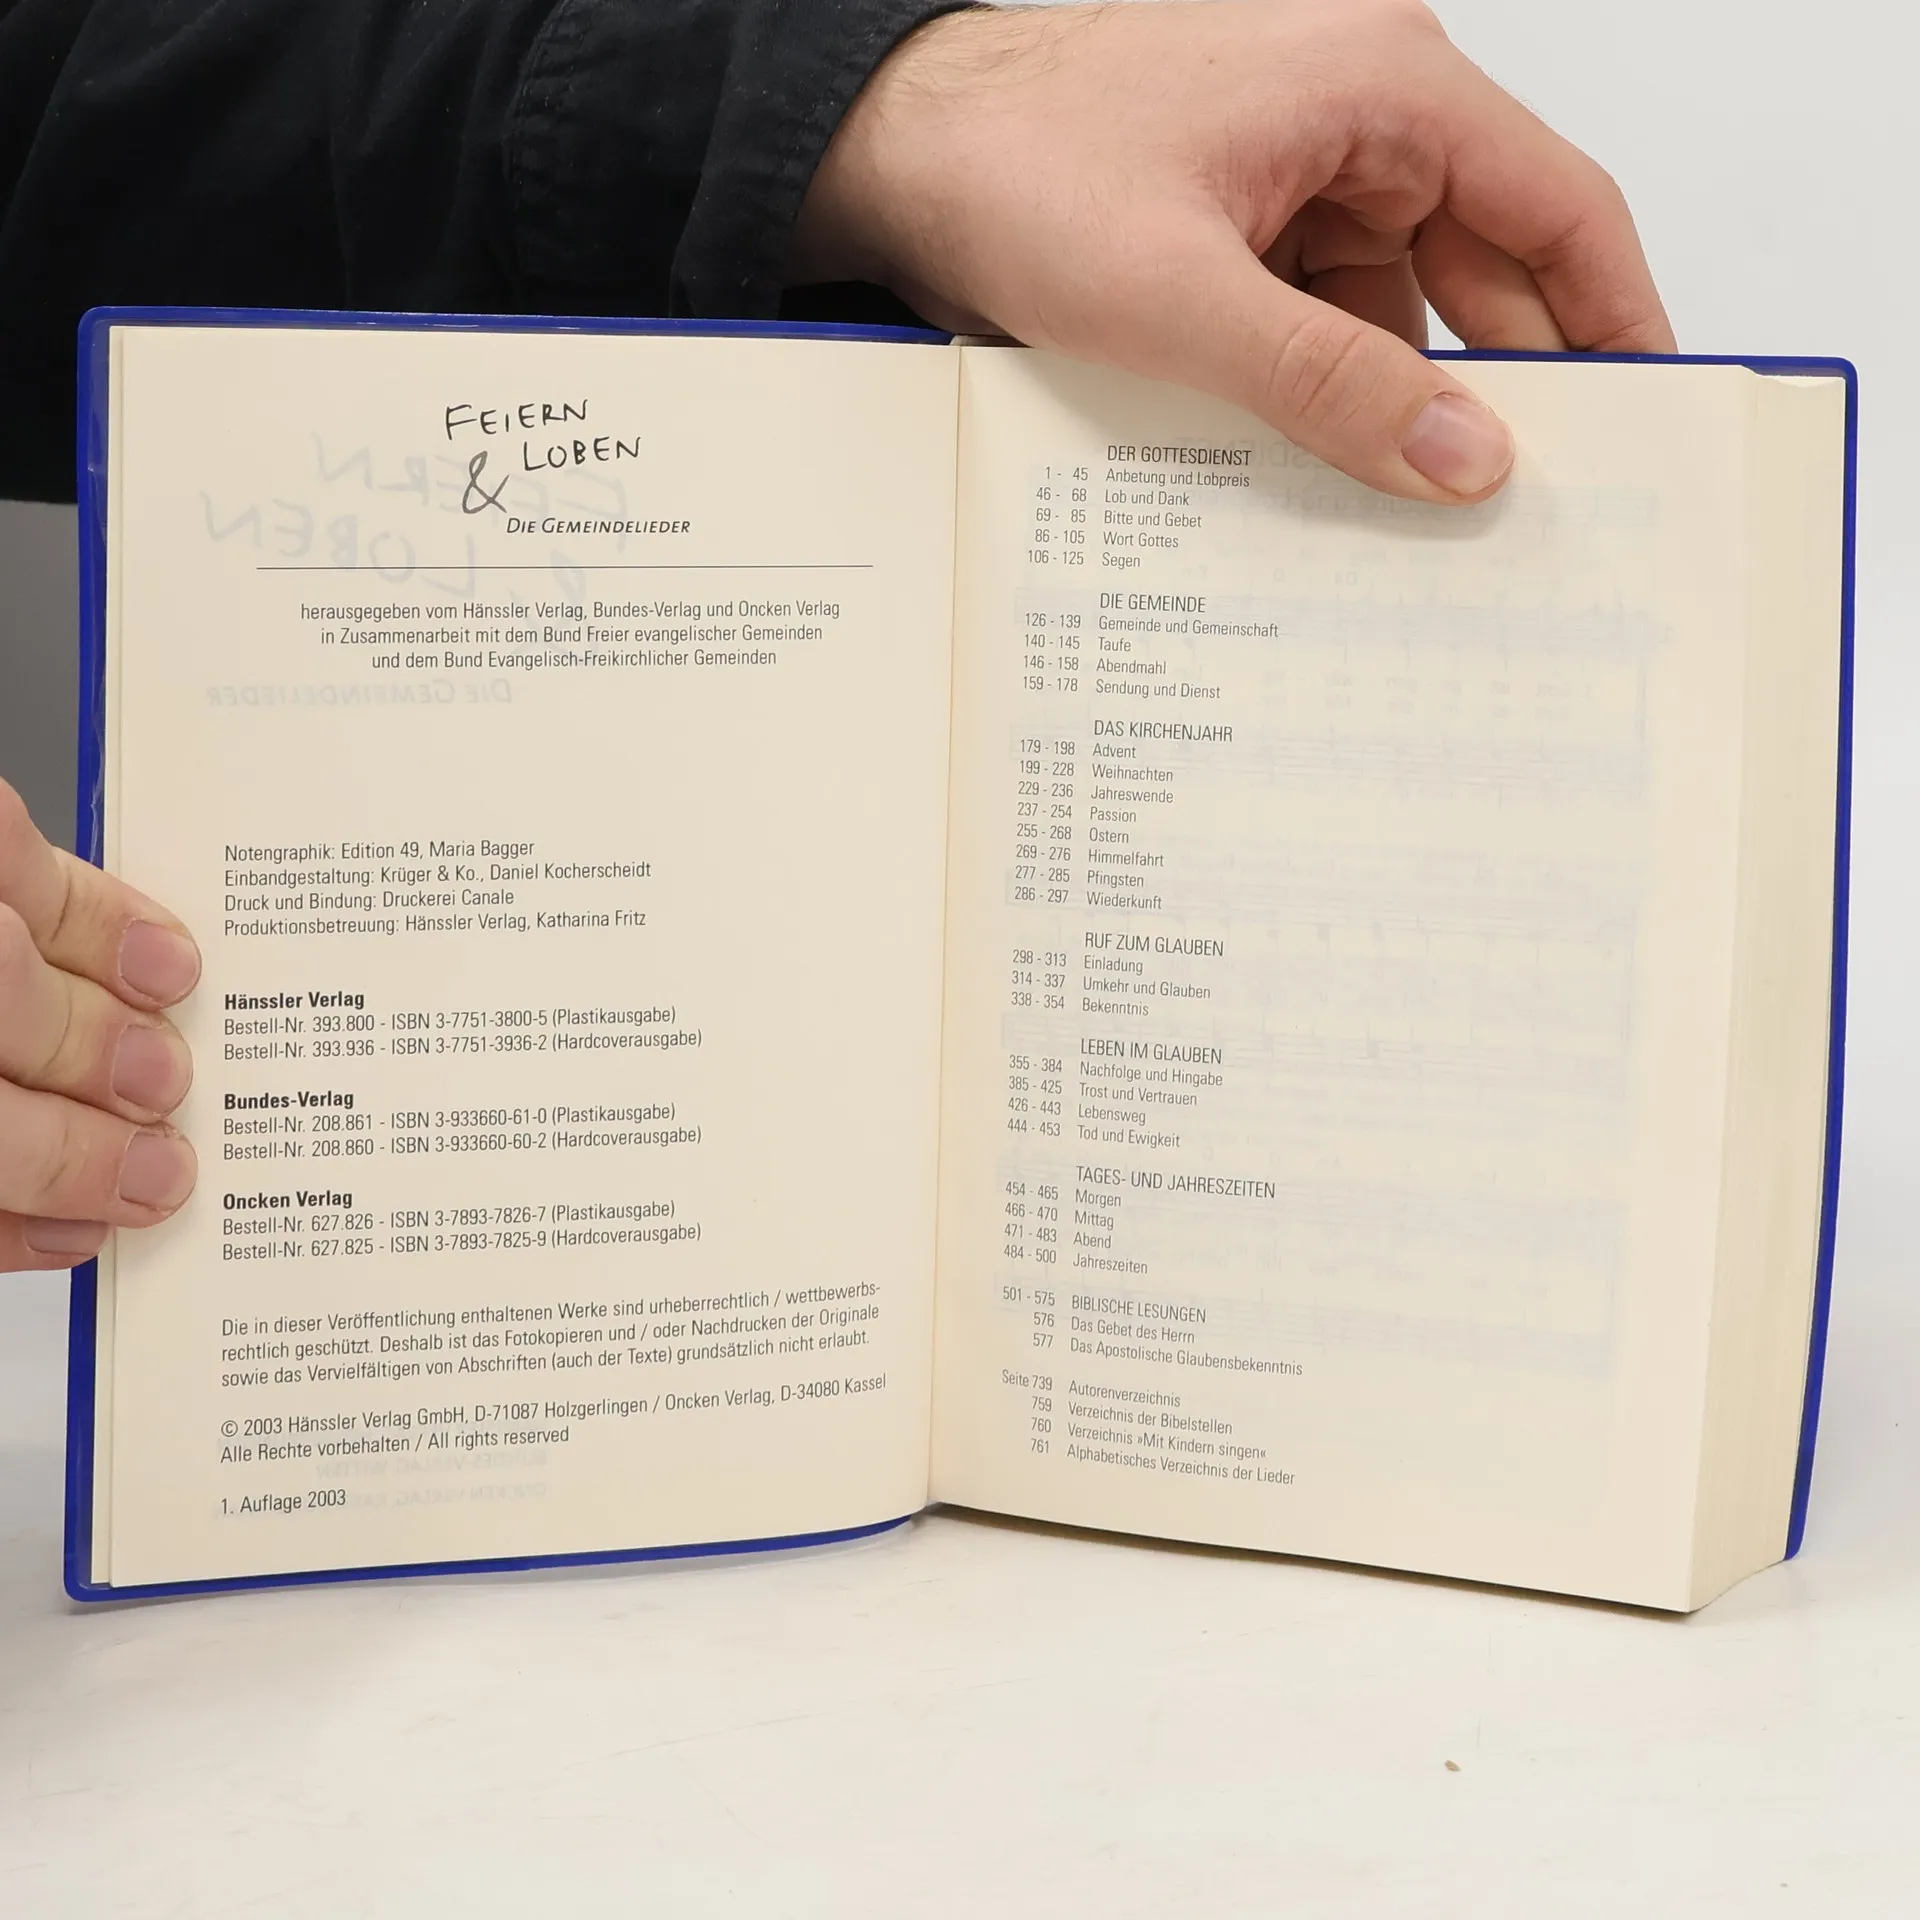 FEIERN
& LOBEN
DIE GEMEINDELIEDER
herausgegeben vom Hänssler Verlag, Bundes-Verlag und Oncken Verlag
in Zusammenarbeit mit dem Bund Freier evangelischer Gemeinden
und dem Bund Evangelisch-Freikirchlicher Gemeinden
Notengraphik: Edition 49, Maria Bagger
Einbandgestaltung: Krüger & Ko., Daniel Kocherscheidt
Druck und Bindung: Druckerei Canale
Produktionsbetreuung: Hänssler Verlag, Katharina Fritz
Hänssler Verlag
Bestell-Nr. 393.800 - ISBN 3-7751-3800-5 (Plastikausgabe)
Bestell-Nr. 393.936 - ISBN 3-7751-3936-2 (Hardcoverausgabe)
Bundes-Verlag
Bestell-Nr. 208.861 - ISBN 3-933660-61-0 (Plastikausgabe)
Bestell-Nr. 208.860 - ISBN 3-933660-60-2 (Hardcoverausgabe)
Oncken Verlag
Bestell-Nr. 627.826 - ISBN 3-7893-7826-7 (Plastikausgabe)
Bestell-Nr. 627.825 - ISBN 3-7893-7825-9 (Hardcoverausgabe)
Die in dieser Veröffentlichung enthaltenen Werke sind urheberrechtlich / wettbewerbs-
rechtlich geschützt. Deshalb ist das Fotokopieren und / oder Nachdrucken der Originale
sowie das Vervielfältigen von Abschriften (auch der Texte) grundsätzlich nicht erlaubt.
© 2003 Hänssler Verlag GmbH, D-71087 Holzgerlingen / Oncken Verlag, D-34080 Kassel
Alle Rechte vorbehalten / All rights reserved
1. Auflage 2003
DER GOTTESDIENST
1 - 45 Anbetung und Lobpreis
46 - 68 Lob und Dank
69 - 85 Bitte und Gebet
86 - 105 Wort Gottes
106 - 125 Segen
DIE GEMEINDE
126 - 139 Gemeinde und Gemeinschaft
140 - 145 Taufe
146 - 158 Abendmahl
159 - 178 Sendung und Dienst
DAS KIRCHENJAHR
179 - 198 Advent
199 - 228 Weihnachten
229 - 236 Jahreswende
237 - 254 Passion
255 - 268 Ostern
269 - 276 Himmelfahrt
277 - 285 Pfingsten
286 - 297 Wiederkunft
RUF ZUM GLAUBEN
298 - 313 Einladung
314 - 337 Umkehr und Glauben
338 - 354 Bekenntnis
LEBEN IM GLAUBEN
355 - 384 Nachfolge und Hingabe
385 - 425 Trost und Vertrauen
426 - 443 Lebensweg
444 - 453 Tod und Ewigkeit
TAGES- UND JAHRESZEITEN
454 - 465 Morgen
466 - 470 Mittag
471 - 483 Abend
484 - 500 Jahreszeiten
501 - 575 BIBLISCHE LESUNGEN
576 Das Gebet des Herrn
577 Das Apostolische Glaubensbekenntnis
Seite 739 Autorenverzeichnis
759 Verzeichnis der Bibelstellen
760 Verzeichnis »Mit Kindern singen«
761 Alphabetisches Verzeichnis der Lieder